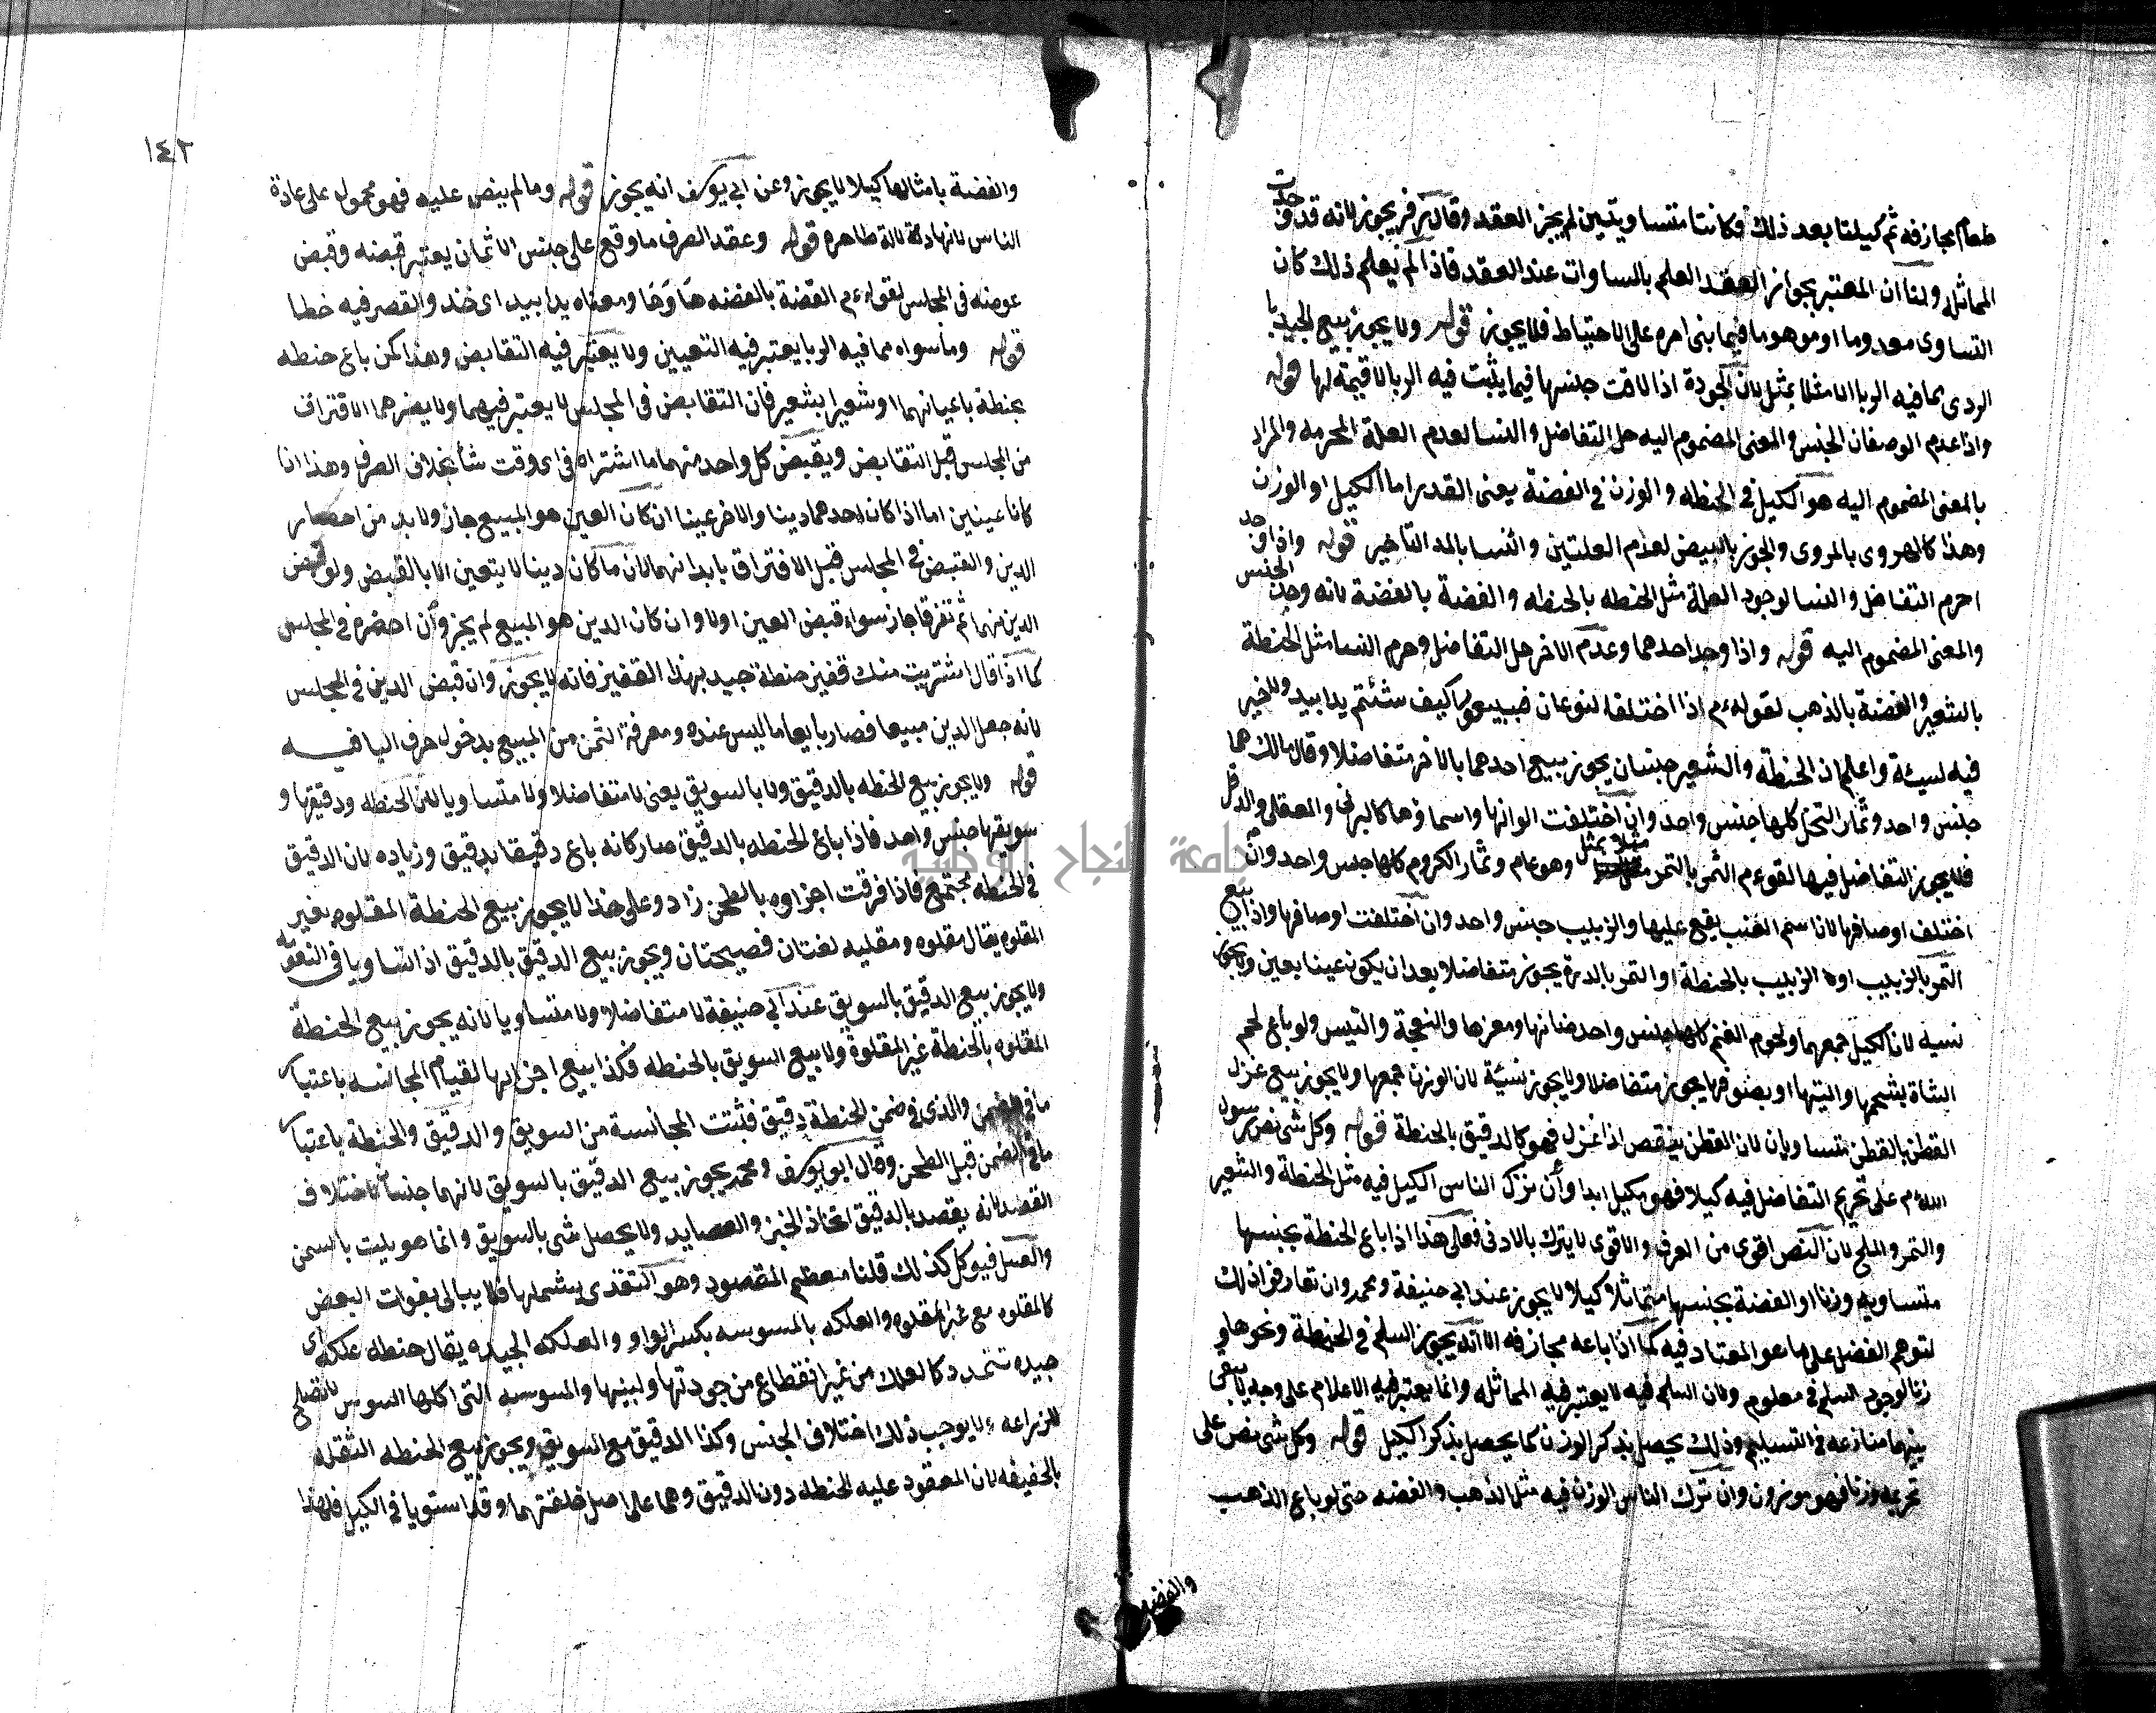 طعام مجازفه ثم كيلتا بعد ذلك فكانتا متساويتين لم يجز العقد وقال زفر يجوز لانه قد وجدت
المماثله ولنا ان المعتبر بجواز العقد العلم بالمساوات عند العقد فاذا لم يعلم ذلك كان
التساوى معدوما او موهوما فيما بنى امره على الاحتياط فلا يجوز قوله ولا يجوز بيع الجيد با
الردى مما فيه الربا الا مثلا بمثل لان الجودة اذا لاقت جنسها فيما يثبت فيه الربا لا قيمة لها قوله
واذا عدم الوصفان الجنس والمعنى المضموم اليه حل التفاضل والنسا لعدم العلة المحرمه والمراد
بالمعنى المضموم اليه هو الكيل فى الحنطه والوزن فى الفضة يعنى القدر اما الكيل او الوزن
وهذا كالهروى بالمروى والجوز بالبيض لعدم العلتين والنسا بالمد التاخير قوله واذا وجد
احرم التفاضل والنسا لوجود العلة مثل الحنطه بالحنطه والفضة بالفضة لانه وجد الجنس
والمعنى المضموم اليه قوله واذا وجد احدهما وعدم الاخر حل التفاضل وحرم النسا مثل الحنطة
بالشعير والفضة بالذهب لقوله ءم اذا اختلفا لنوعان فبيعوا كيف شئتم يدا بيد ولا خير
فيه نسيئة واعلم ان الحنطة والشعير جنسان يجوز بيع احدهما بالاخر متفاضلا وقال مالك هما
جنس واحد وثمار النخل كلها جنس واحد وان اختلفت الوانها واسماوها كالبرنى والمعقلى والدقل
فلا يجوز التفاضل فيها لقوءم التمر بالتمر مثلا بمثل وهو عام وثمار الكروم كلها جنس واحد وان
اختلف اوصافها لان اسم العنب يقع عليها والزبيب جنس واحد وان اختلفت اوصافها واذا بيع
التمر بالزبيب او الزبيب بالحنطة او التمر بالدرة يجوز متفاضلا بعد ان يكون عينا بعين ولا يجوز
نسيه لان الكيل جمعهما ولحوم الغنم كلها جنس واحد ضانها ومعزها والنعجة والتيس ولو باع لحم
الشاة بشحمها واليتها او بصوفها يجوز متفاضلا ولا يجوز نسيئة لان الوزن جمعها ولا يجوز بيع غزل
القطن بالقطن متساويان لان القطن ينقص اذا غزل فهو كالدقيق بالحنطة قوله وكل شى نص رسول
الله ءم على تحريم التفاضل فيه كيلا فهو مكيل ابدا وان ترك الناس الكيل فيه مثل الحنطة والشعير
والتمر والملح لان النص اقوى من العرف والاقوى لا يترك بالادنى فعلى هذا اذا باع الحنطة بجنسها
متساويه وزنا او الفضة بجنسها متماثلا كيلا لا يجوز عند ابى حنيفة ومحمد وان تعارفوا ذلك
لتوهم الفضل على ما هو المعتاد فيه كما اذا باعه مجازفه الا انه يجوز السلم فى الحنطة ونحوها و
زنا لوجود السلم فى معلوم ولان السلم فيه لا يعتبر فيه المماثله وانما يعتبر فيه الاعلام على وجه لا يبقى
بينهما منازعه فى التسليم وذلك يحصل بذكر الوزن كما يحصل بذكر الكيل قوله وكل شى نص على
تحريمه وزنا فهو موزون وان ترك الناس الوزن فيه مثل الذهب والفضه حتى لو باع الذهب
والفضه
١٤٢
والفضة بامثالها كيلا لا يجوز وعن ابى يوسف انه يجوز قوله وما لم ينص عليه فهو محمول على عادة
الناس لانها دلالة ظاهره قوله وعقد الصرف ما وقع على جنس الاثمان يعتبر قبضه وقبض
عوضه فى المجلس لقوله ءم الفضة بالفضه هَا وَهَا ومعناه يدا بيد اى خذ والقصر فيه خطا
قوله وما سواه مما فيه الربا يعتبر فيه التعيين ولا يعتبر فيه التقابض وهذا كمن باع حنطه
بحنطة باعيانهما او شعيرا بشعير فان التقابض فى المجلس لا يعتبر فيهما ولا يضرهما الافتراق
من المجلس قبل التقابض ويقبض كل واحد منهما ما اشتراه فى اى وقت شأ بخلاف الصرف وهذا اذا
كانا عينين اما اذا كان احدهما دينا والاخر عينا ان كان العين هو المبيع جاز ولا بد من احضار
الدين والقبض فى المجلس قبل الافتراق بابدانهما لان ما كان دينا لا يتعين الا بالقبض ولو قبض
الدين منهما ثم تفرقا جاز سواء قبض العين اولا وان كان الدين هو المبيع لم يجز وان احضره فى المجلس
كما اذا قال اشتريت منك قفيز حنطة جيد بهذا القفيز فانه لا يجوز وان قبض الدين فى المجلس
لانه جعل الدين مبيعا فصار بايعا ما ليس عنده ومعرفة الثمن من المبيع بدخول حرف البا فيه
قوله ولا يجوز بيع الحنطه بالدقيق ولا بالسويق يعنى لا متفاضلا ولا متساويا لان الحنطه ودقيقها و
سويقها جنس واحد فاذا باع الحنطه بالدقيق صار كانه باع دقيقا بدقيق وزياده لان الدقيق
فى الحنطه مجتمع فاذا فرقت اجزاوه بالطحن زاد وعلى هذا لا يجوز بيع الحنطة المقلوه بغير
المقلوه يقال مقلوه ومقليه لغتان فصيحتان ويجوز بيع الدقيق بالدقيق اذا تساويا فى النعومة
ولا يجوز بيع الدقيق بالسويق عند ابى حنيفة لا متفاضلا ولا متساويا لانه يجوز بيع الحنطة
المقلوه بالحنطة غير المقلوة ولا بيع السويق بالحنطه فكذا بيع اجزائها لقيام المجانسه باعتبار
ما فى الضمن والذى فى ضمن الحنطة دقيق فثبتت المجانسة من السويق والدقيق والحنطة باعتبار
ما فى الضمن قبل الطحن وقال ابو يوسف ومحمد يجوز بيع الدقيق بالسويق لانهما جنسان باختلاف
القصد لانه يقصد بالدقيق اتخاذ الخبز والعصايد ولا يحصل شى بالسويق وانما هو يلت بالسمن
والعسل فيوكل كذلك قلنا معظم المقصود وهو التغذى يشملها فلا يبالى بفوات البعض
كالمقلوه مع غير المقلوه والعلكه بالمسوسه بكسر الواو والعلكه الجيده يقال حنطه علكه اى
جيده تتمدد كالعلك من غير انقطاع من جودتها ولينها والمسوسه التى اكلها السوس لا تصلح
للزراعه ولا يوجب ذلك اختلاف الجنس وكذا الدقيق مع السويق ويجوز بيع الحنطه الثقله
بالخفيفه لان المعقود عليه الحنطه دون الدقيق وهما على اصل خلقتهما وقد استويا فى الكيل فلهذا
جامعة النجاح الوطنية